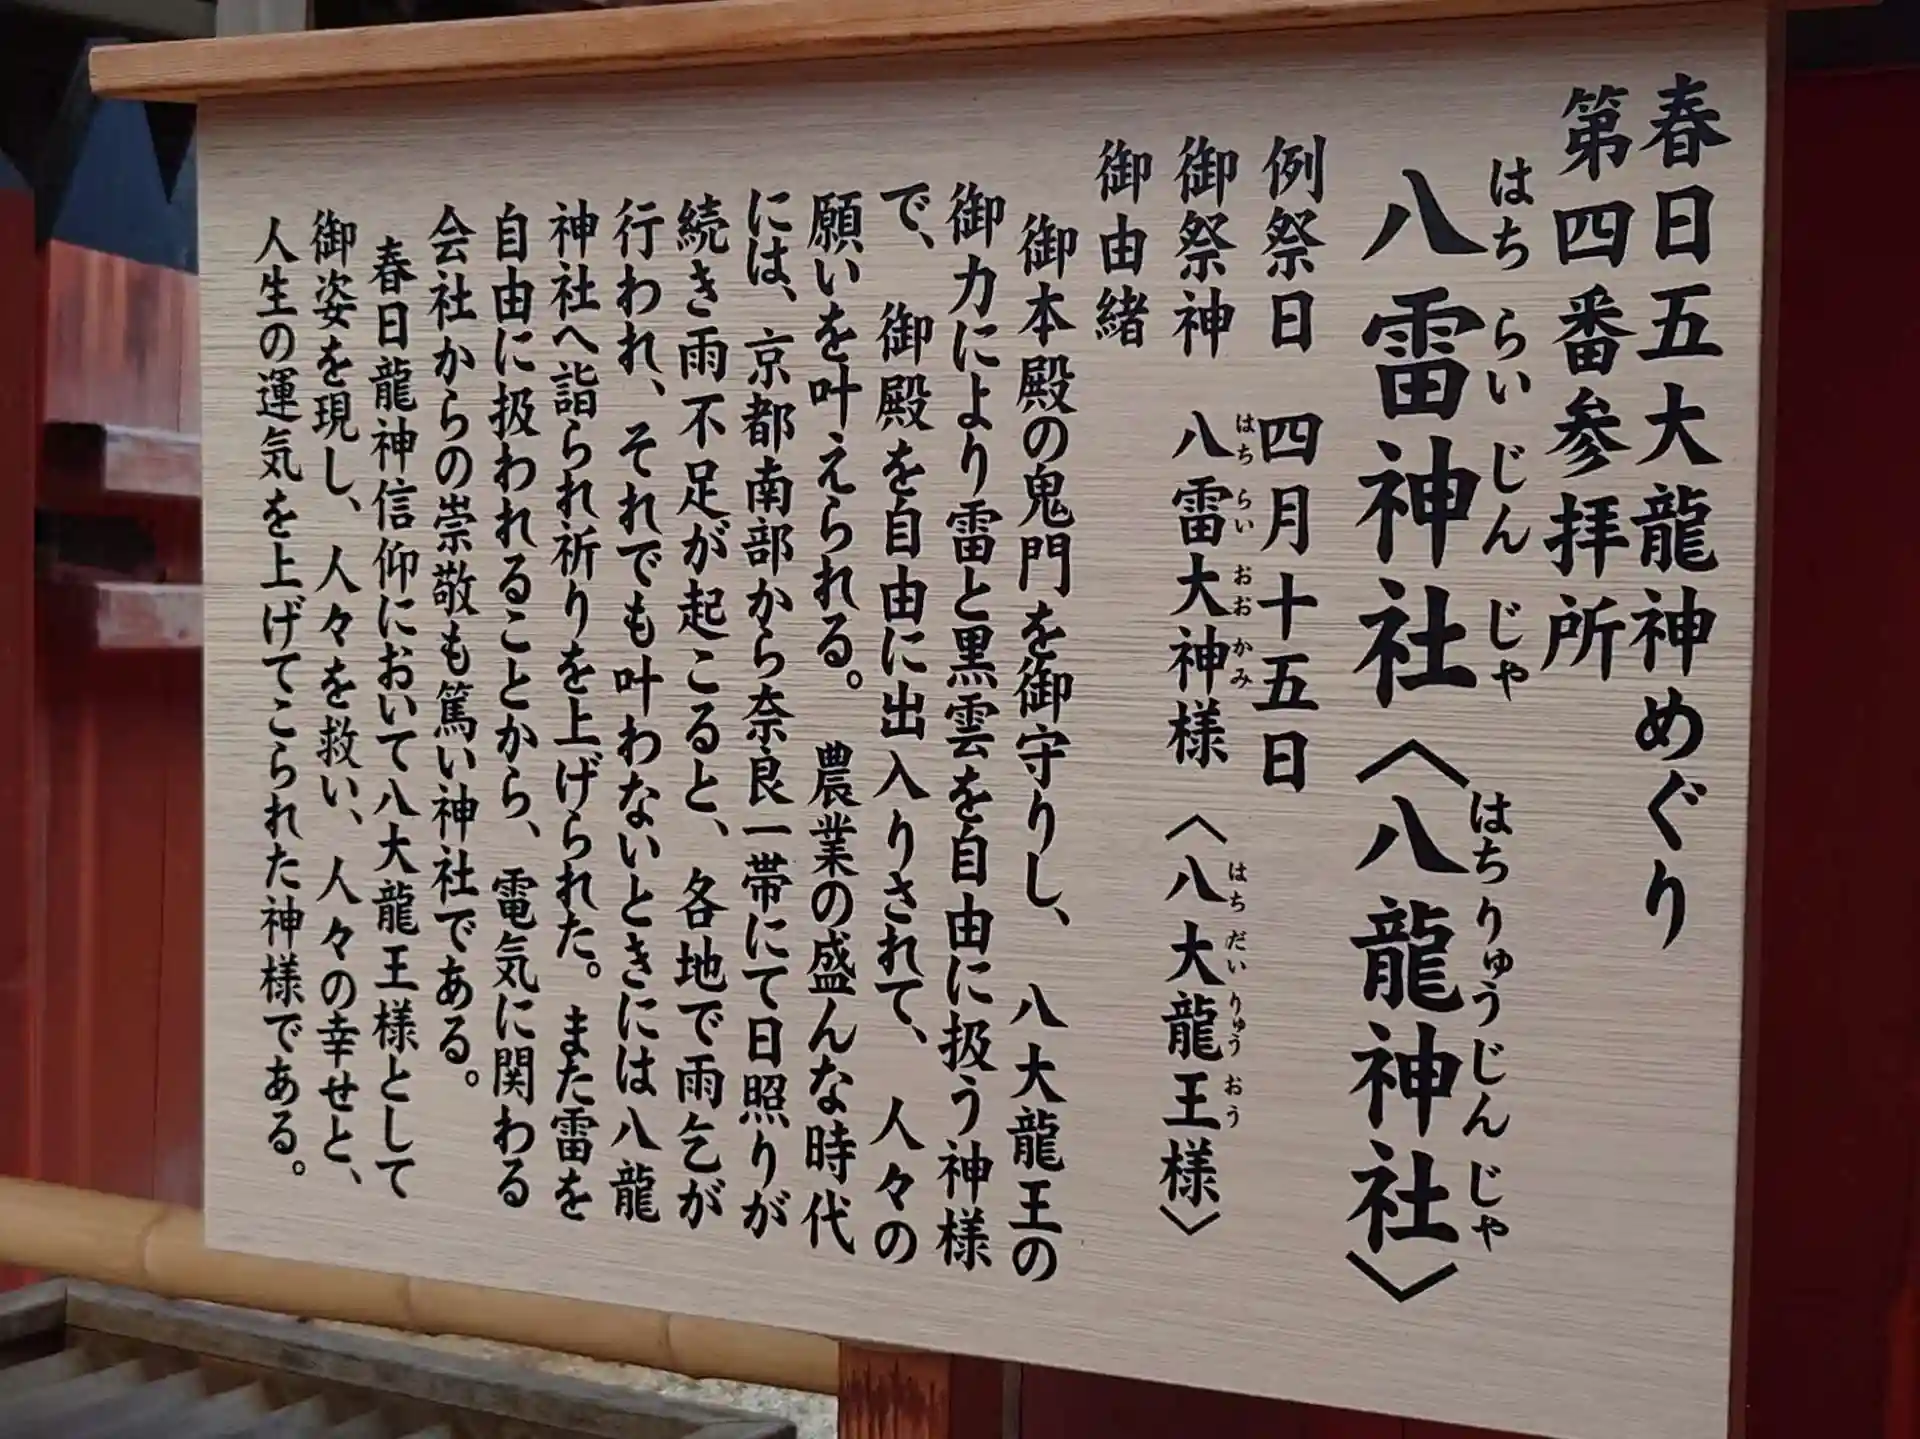 春日五大龍神めぐり
第四番参拝所
はち らい じん じゃ はちりゅうじんじゃ
八雷神社〈八龍神社〉
例祭日 四月十五日
はち らい おお かみ はち だい りゅう おう
御祭神 八雷大神様〈八大龍王様〉
御由緒
御本殿の鬼門を御守りし、八大龍王の
御力により雷と黒雲を自由に扱う神様
で、御殿を自由に出入りされて、人々の
願いを叶えられる。農業の盛んな時代
には、京都南部から奈良一帯にて日照りが
続き雨不足が起こると、各地で雨乞が
行われ、それでも叶わないときには八龍
神社へ詣られ祈りを上げられた。また雷を
自由に扱われることから、電気に関わる
会社からの崇敬も篤い神社である。
春日龍神信仰において八大龍王様として
御姿を現し、人々を救い、人々の幸せと、
人生の運気を上げてこられた神様である。